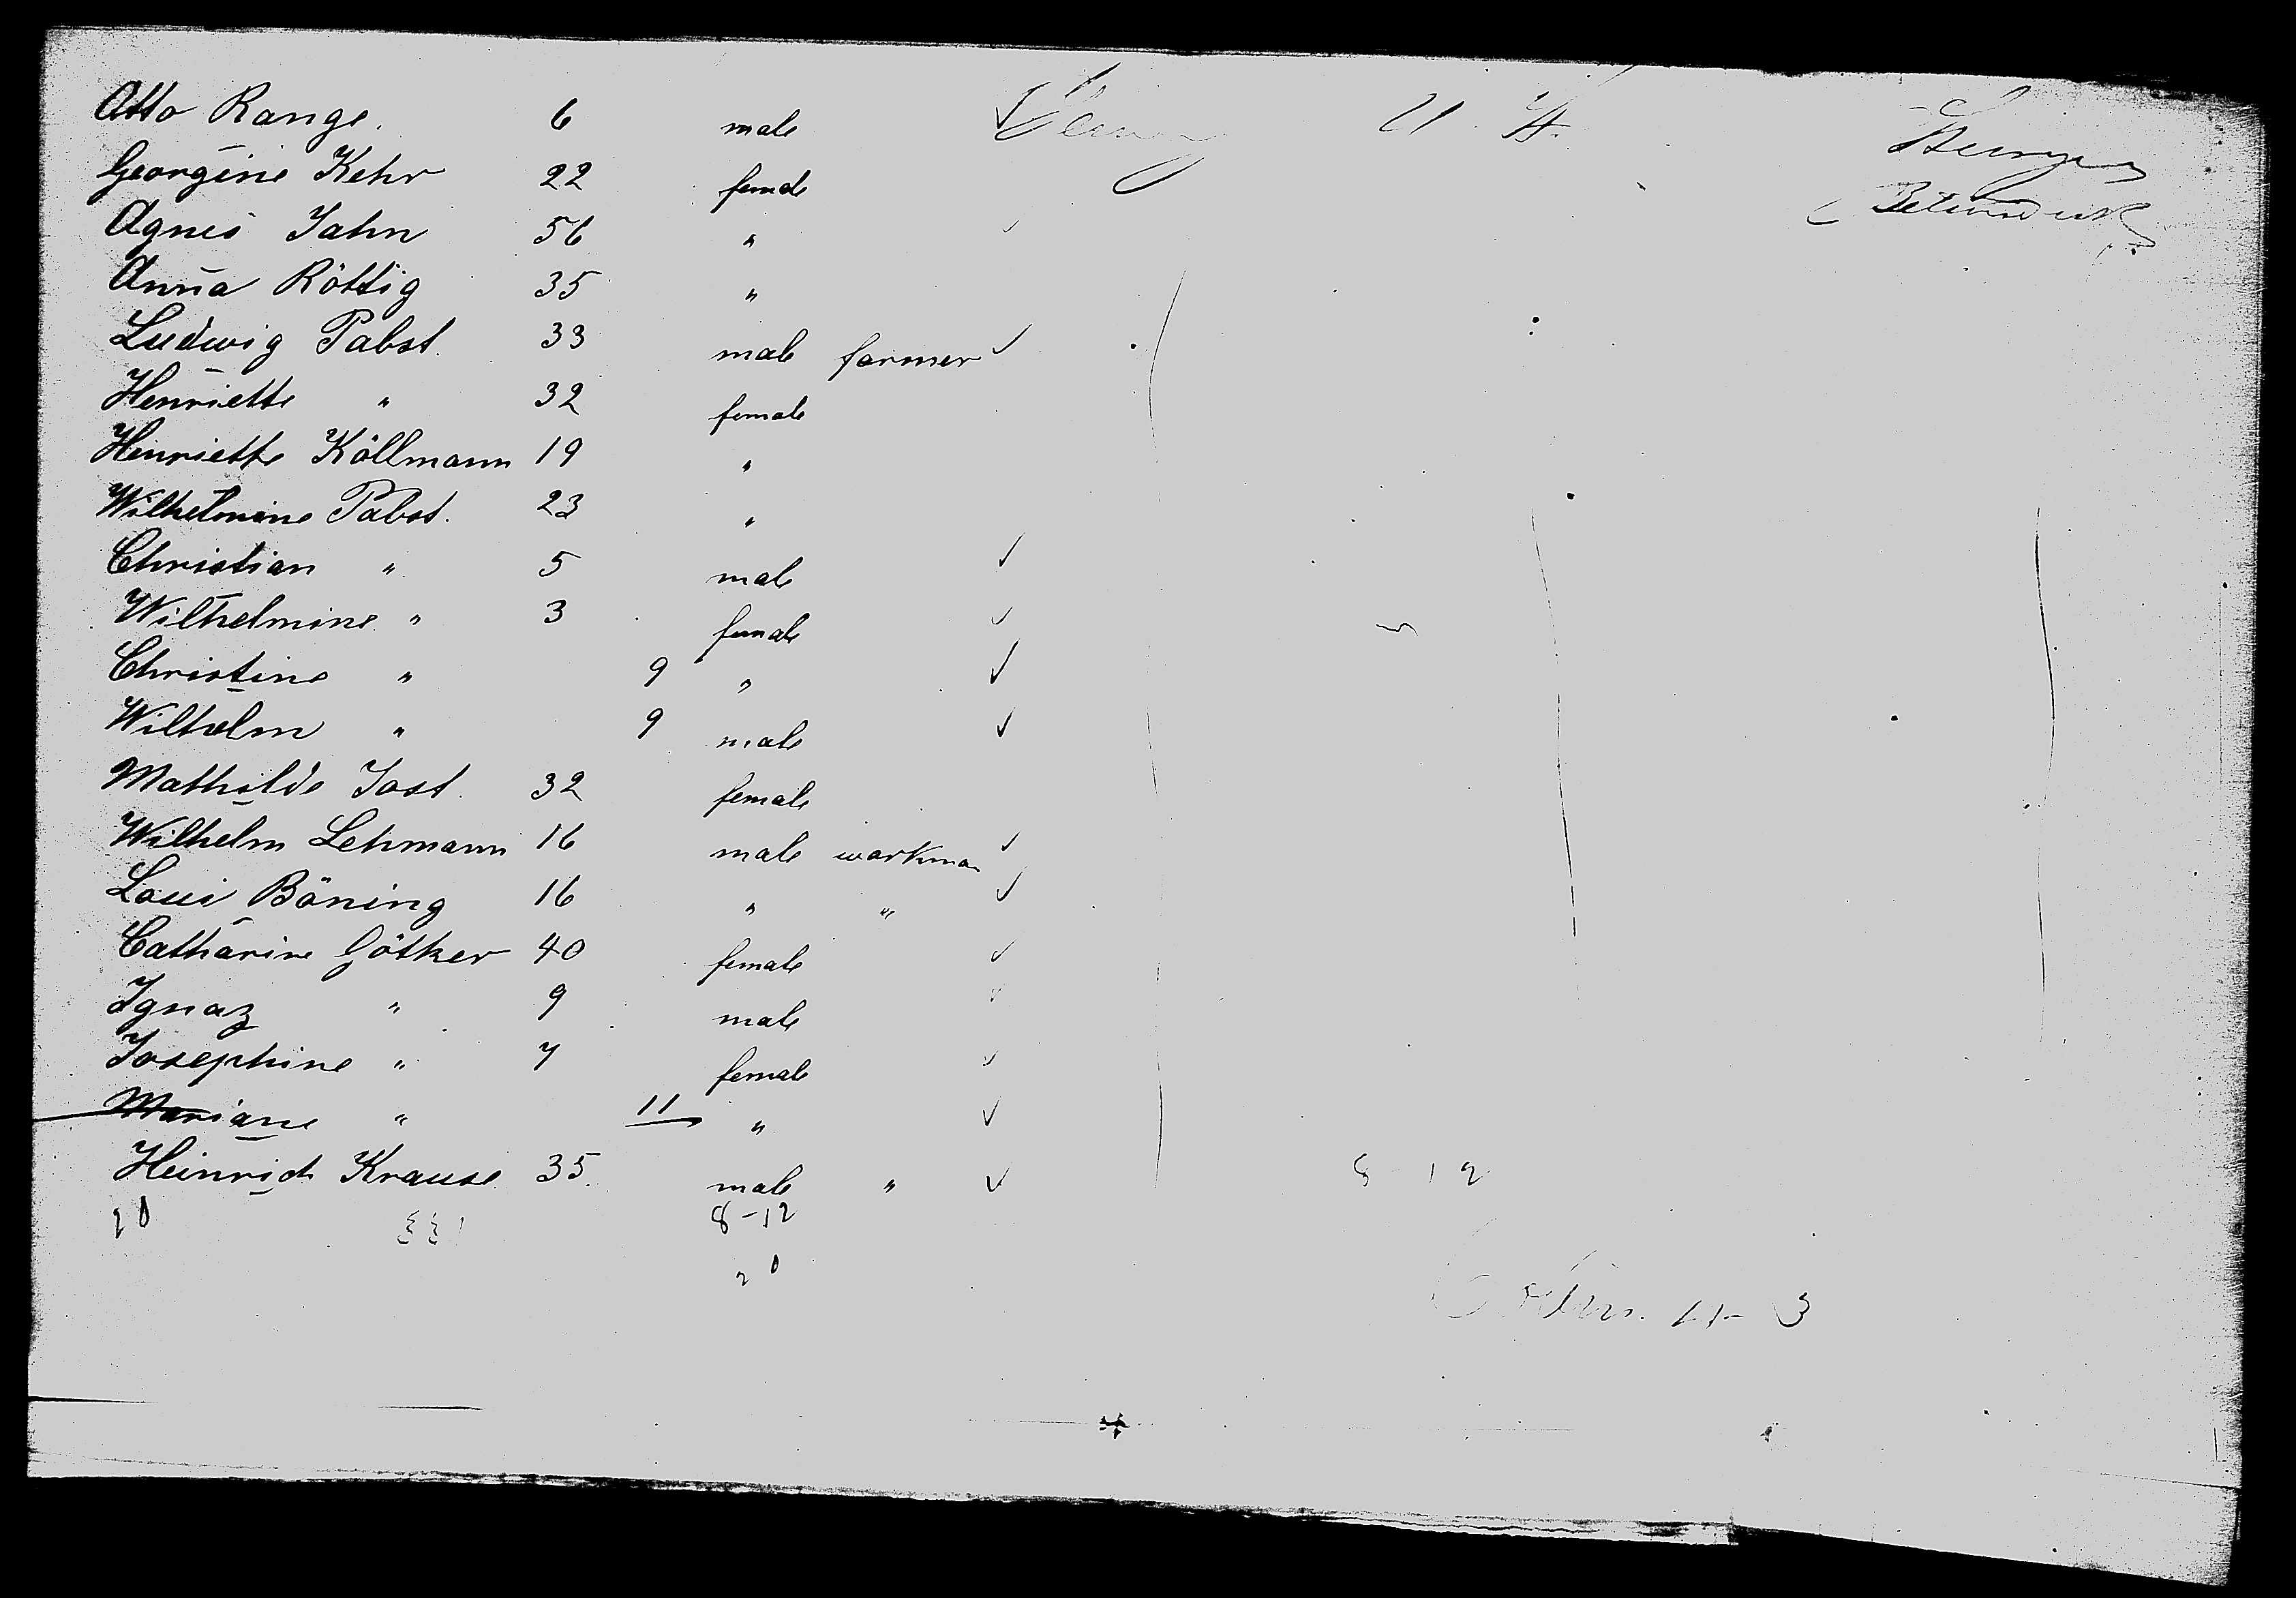 Otto Range. 6 male
Georgine Kehr 22 female
Agnes Jahn 56 "
Anna Röttig 35 "
Ludwig Pabst. 33 male farmer
Henriette " 32 female
Henriette Köllmann 19 "
Wilhelmine Pabst. 23 "
Christian " 5 male
Wilhelmine " 3 female
Christine " 9 "
Wilhelm " 9 male
Mathilde Jost. 32 female
Wilhelm Lehmann 16 male workman
Loui Böning 16 " "
Catharine Götker 40 female
Ignaz " 9 male
Josephine " 7 female
Mariane " 11 "
Heinrich Krause 35. male "
20 8-12
20